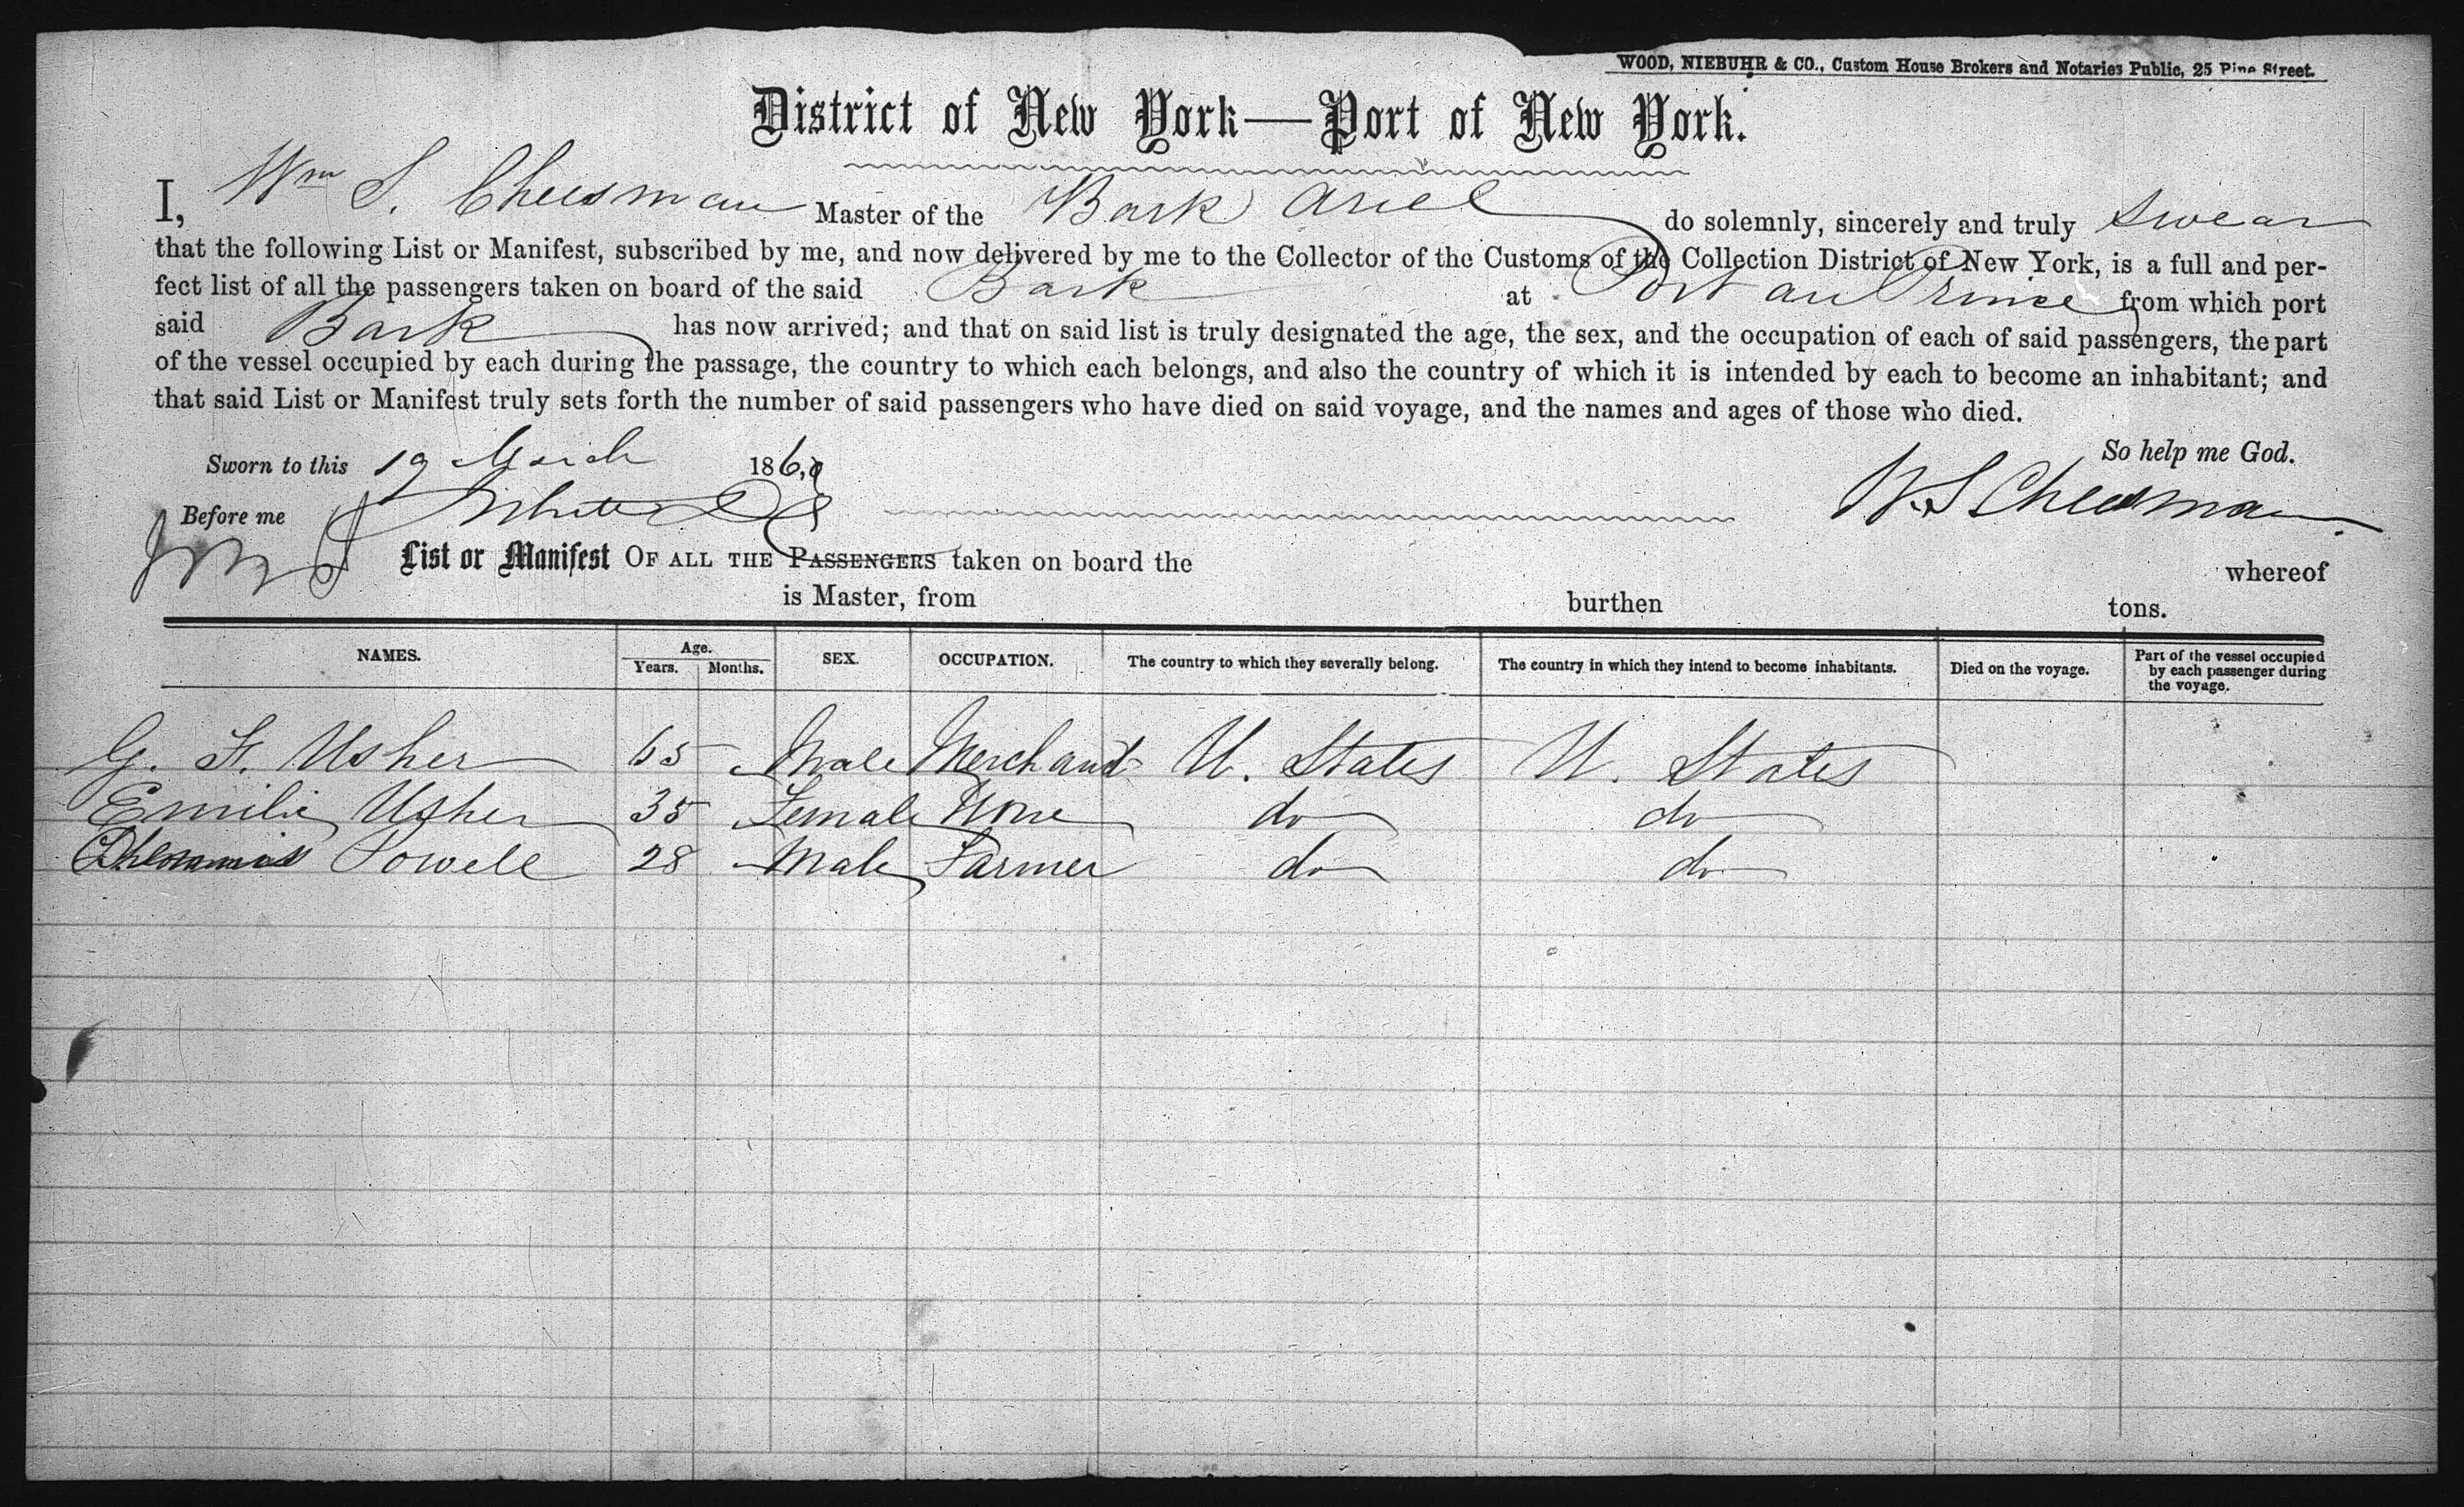 WOOD, NIEBUHR & CO., Custom House Brokers and Notaries Public, 25 Pine Street.
District of New York—Port of New York.
I, Wm S. Cheesman Master of the Bark Ariel do solemnly, sincerely and truly swear
that the following List or Manifest, subscribed by me, and now delivered by me to the Collector of the Customs of the Collection District of New York, is a full and per-
fect list of all the passengers taken on board of the said Bark at Port au Prince from which port
said Bark has now arrived; and that on said list is truly designated the age, the sex, and the occupation of each of said passengers, the part
of the vessel occupied by each during the passage, the country to which each belongs, and also the country of which it is intended by each to become an inhabitant; and
that said List or Manifest truly sets forth the number of said passengers who have died on said voyage, and the names and ages of those who died.
So help me God.
Sworn to this 19 March 186
Before me W. S. Cheesman
List or Manifest OF ALL THE PASSENGERS taken on board the whereof
is Master, from burthen tons.
NAMES. Age. Years. Months. SEX. OCCUPATION. The country to which they severally belong. The country in which they intend to become inhabitants. Died on the voyage. Part of the vessel occupied by each passenger during the voyage.
G. F. Usher 65 Male Merchant U. States U. States
Emilie Usher 35 Female None do do
Powell 28 Male Farmer do do